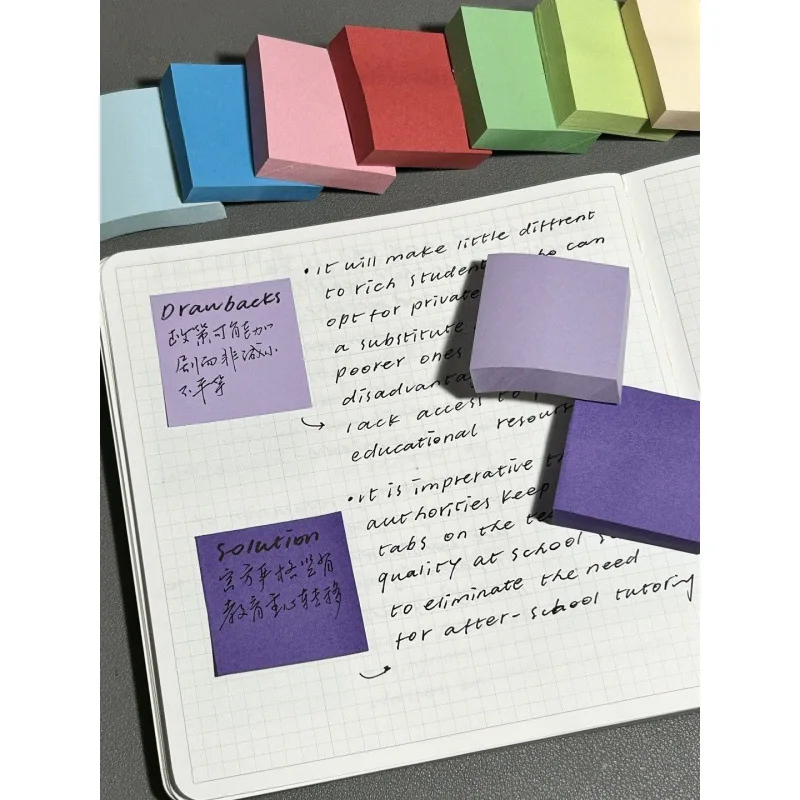 Drawbacks
政策可能加
剧而非减小
不平等
• It will make little diffrent
to rich student who can
opt for private
a substitute
poorer ones
disadvanta
lack access to
educational resour
solution
官方严格监督
教育重心转移
• it is imprerative
authorities keep
tabs on the
quality at school
to eliminate the need
for after-school tutoring